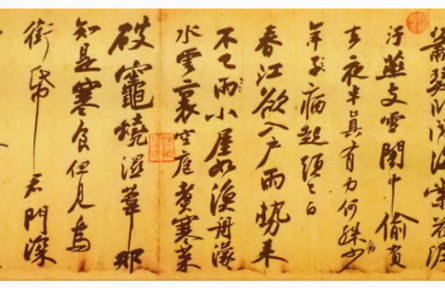 蕭瑟卧聞海棠花泥
汙燕支雪闇中偷負
去夜半真有力何殊少
病
年子病起頭已白
春江欲入戶雨勢来
不已雨小屋如漁舟濛
水雲裏空庖煮寒菜
破竈燒濕葦那
知是寒食但見烏
銜帋君門深